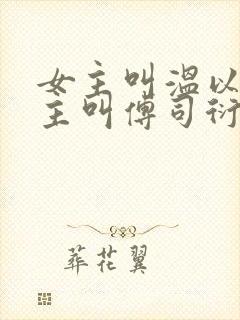 女主叫温以
主叫傅司衍
葬花翼